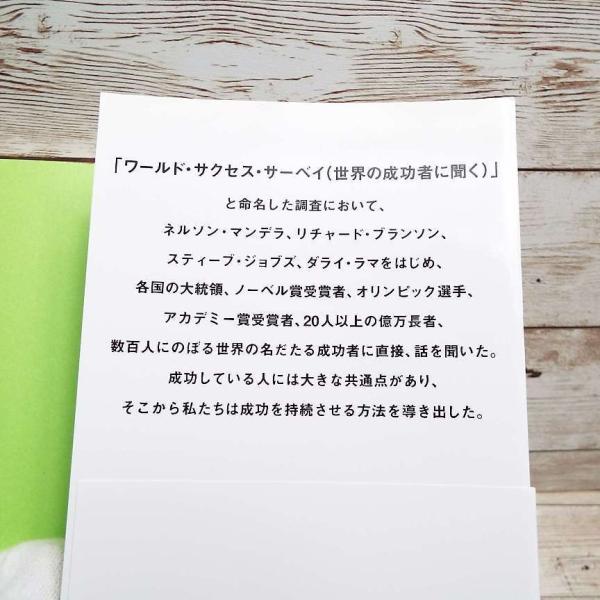 「ワールド・サクセス・サーベイ(世界の成功者に聞く)」
と命名した調査において、
ネルソン・マンデラ、リチャード・ブランソン、
スティーブ・ジョブズ、ダライ・ラマをはじめ、
各国の大統領、ノーベル賞受賞者、オリンピック選手、
アカデミー賞受賞者、20人以上の億万長者、
数百人にのぼる世界の名だたる成功者に直接、話を聞いた。
成功している人には大きな共通点があり、
そこから私たちは成功を持続させる方法を導き出した。